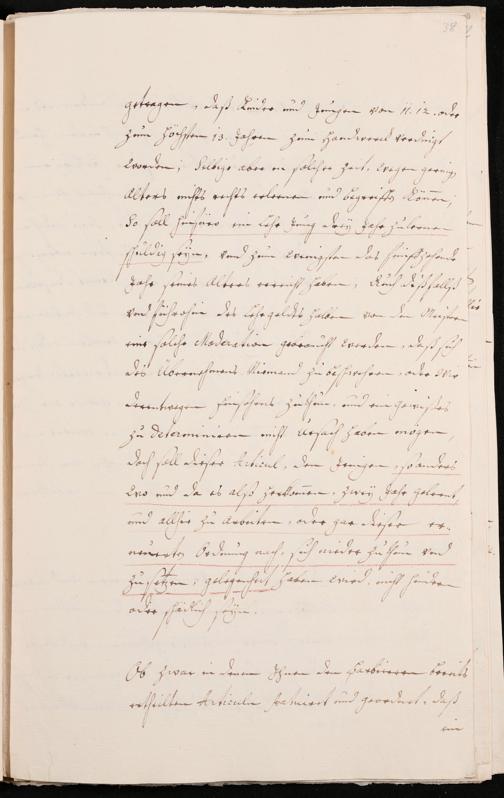 38
getragen, daß Kinder und Jungen von 11. 12. oder
zum höchsten 13. Jahren zum Handwerck verdingt
worden; Selbige aber in solcher Zeit, wegen gering
Alters nichts rechts erlernen und begreiffen können,
So soll hinfüro ein Lehr Jung drey Jahr zulernen
schuldig seyn, und zum wenigsten das funffzehende
Jahr seines Alters erreicht haben, Auch dißfallß
und führohin des Lehrgeldts halben von den Meistern
eine solche Moderation gebraucht werden, daß sich
des Übernehmens Niemand zu beschwehren, oder
derentwegen zuthun, und ein gewißes
zu determiniren nicht Ursach haben mögen,
doch soll dieser Articul, dem Jenigen, so anders
wo und da es alß herkommen, zwey Jahr gelernt,
und allhie zu arbeiten, oder gar dieser er-
neuerten Ordnung nach, sich nieder zuthun und
zu setzen, gelegenheit haben wird, nicht hindern
oder schädlich seyn.
Ob zwar in denen Ihnen den Barbierern bereits
ertheilten Articuln und geordnet, daß
ein